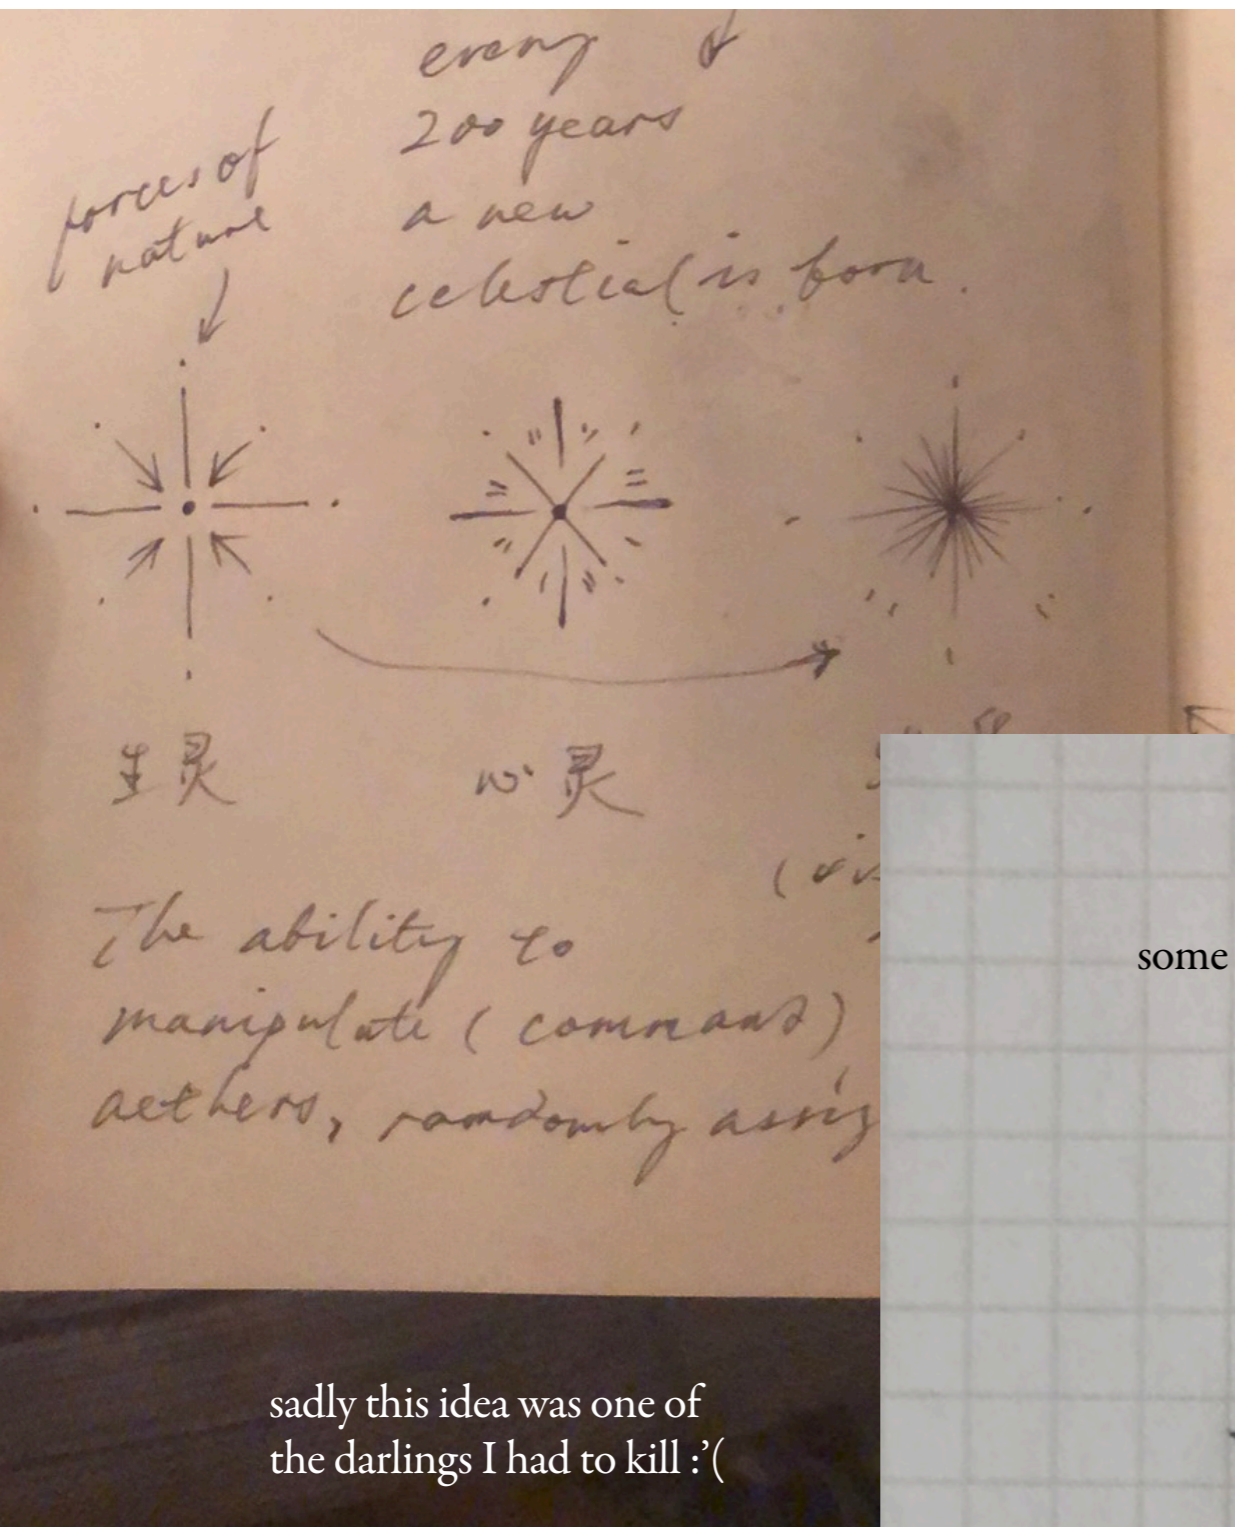 every
200 years
a new
celestial is born.
forces of
nature
生灵
心灵
The ability to
manipulate (command)
aethers, randomly assig
some
sadly this idea was one of
the darlings I had to kill :’(